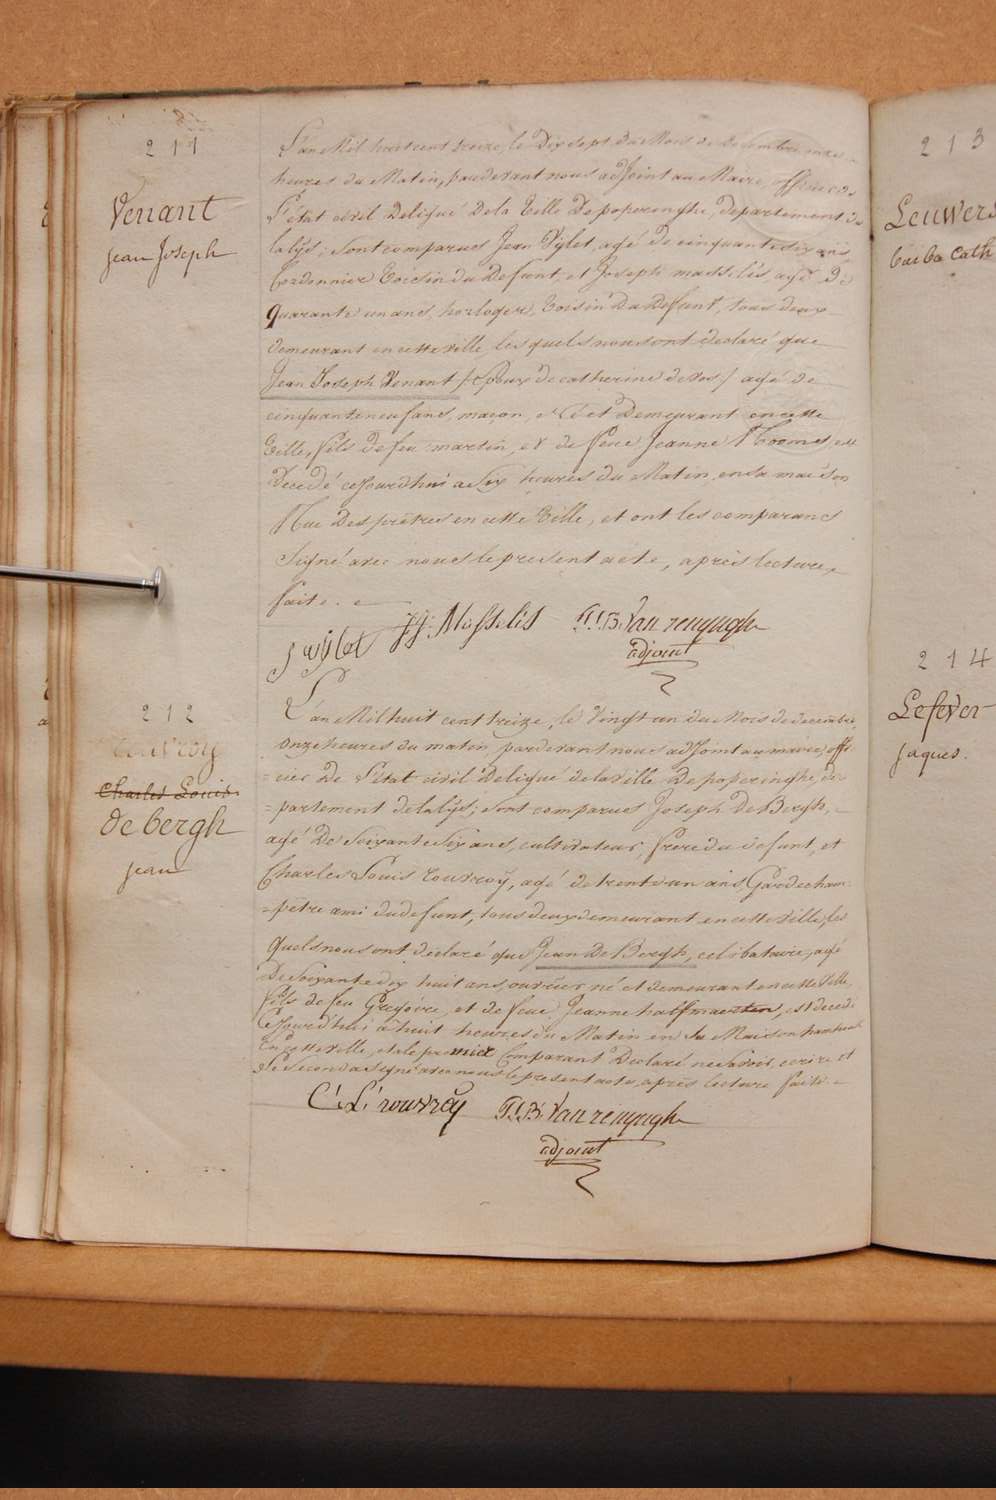 211
Venant
jean Joseph
L'an Mil huit cent treize, le Dix sept du Mois de Decembre, onze
heures du Matin, pardevant nous adjoint au Maire, officier de
l'état civil deligué de la Ville de poperinghe, departement de
la lys; sont comparus Jean Vylet, agé de cinquante six ans
Cordonnier Voisin du Defunt, et Joseph masselis, agé de
quarante un ans, horloger, Voisin Du Defunt, tous deux
demeurant en cette ville, les quels nous ont declaré que
Jean Joseph Venant /: Epoux de catherine de Vos / agé de
cinquante neuf ans, maçon, né et Demeurant en cette
Ville, fils de feu martin, et de feue Jeanne Moenes, est
Decedé cejourdhui a Six heures du Matin, en sa maison
Rue Des prêtres en cette Ville, et ont les comparans
signé avec nous le present acte, après lecture
faite.
J. J. Masselis
P.J.B. Van renynghe
adjoint
212
rouvroy
Charles Louis
de bergh
jean
L'an Mil huit cent treize, le Vingt un du Mois de decembre
onze heures du matin, pardevant nous adjoint au maire, offi
=cier De l'état civil deligué de la Ville De poperinghe, de=
=partement de la lys; sont comparus Joseph De Bergh,
agé De soixante six ans, cultivateur, frere du defunt, et
Charles Louis rouvroÿ, agé de trente un ans, Garde cham
=pêtre ami du defunt, tous deux demeurant en cette Ville, les
quels nous ont declaré que Jean De Bergh, celibataire, agé
De soixante dix huit ans, ouvrier, né et demeurant en cette Ville
fils de feu Gregoire, et de feue Jeanne halfmaerten, est decedé
Cejourd'hui à huit heures du Matin en sa Maison
En cette ville, et a le premier Comparant Declaré ne savoir ecrire et
Le Second a Signé avec nous le present acte, après lecture faite.
C: L: rouvroÿ
P.J.B. Van renynghe
adjoint
213
Leuwers
Barba Cath
214
Lefever
jaques.